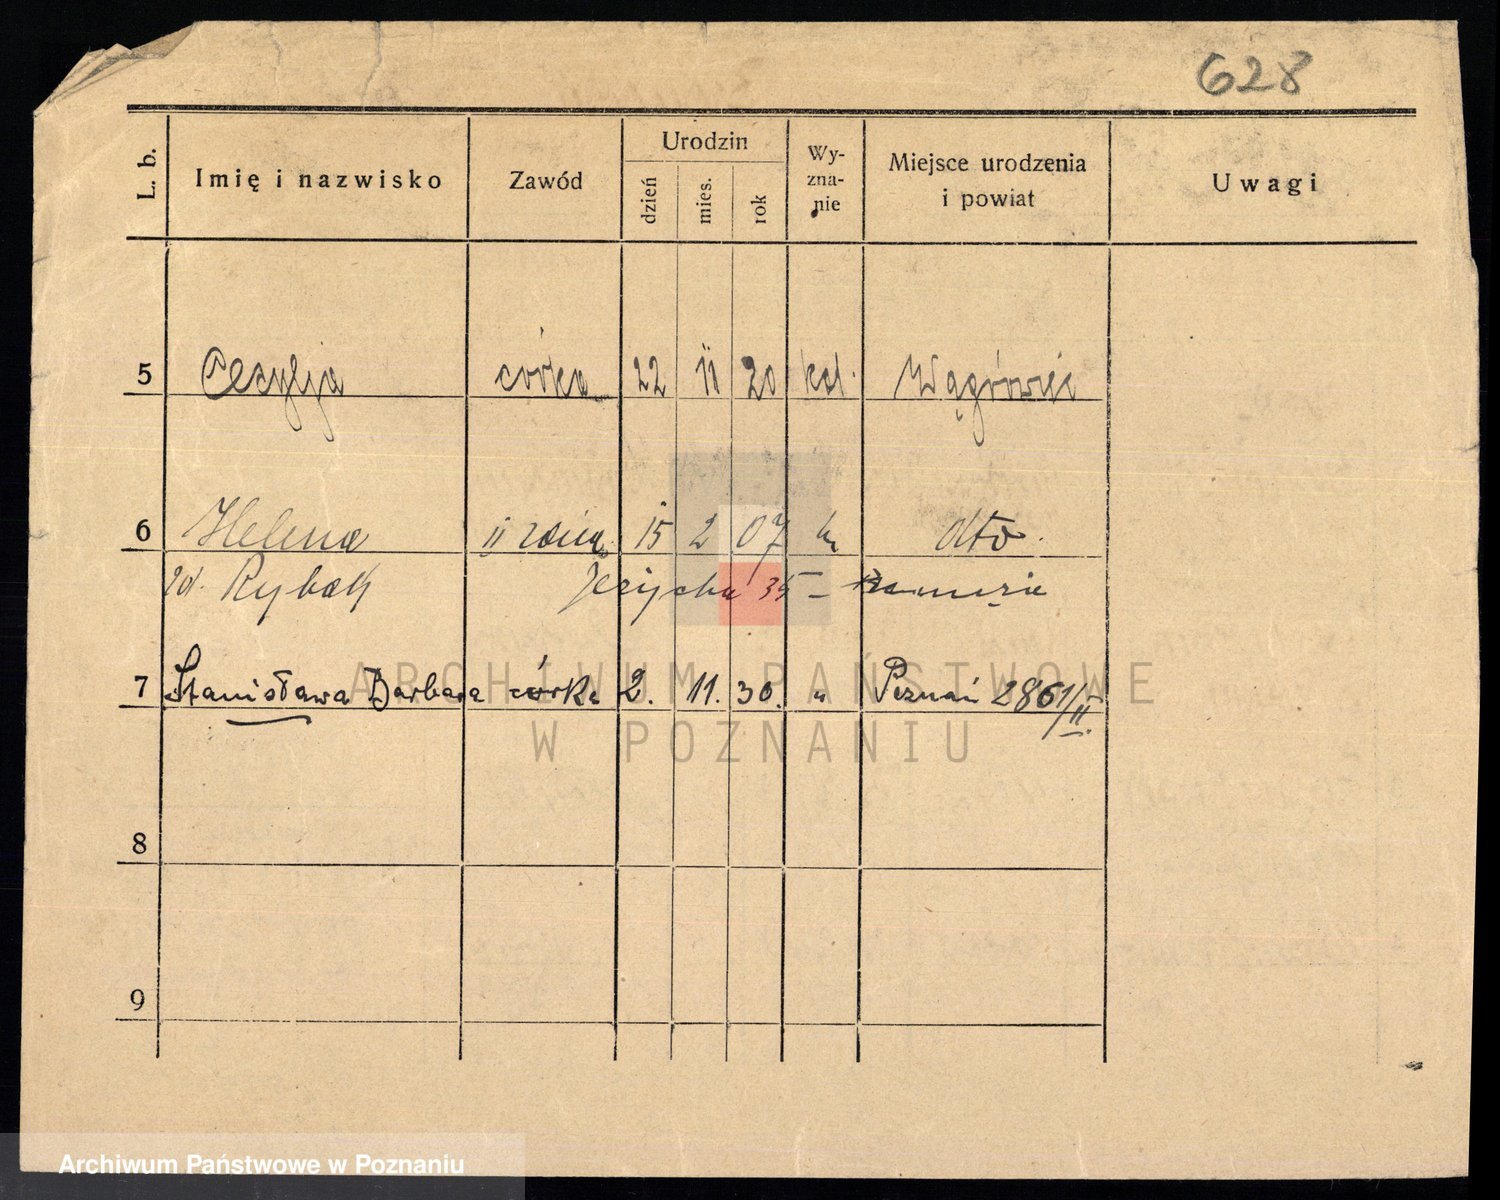 628
L. b. Imię i nazwisko Zawód Urodzin dzień mies. rok Wy-zna-nie Miejsce urodzenia i powiat Uwagi
5 Cecylja córka 22 11 20 kat. Wągrówiec
6 Helena II żona 15 2 07 Otto
zd. Rybak 35 –
7 Stanisława Barbara córka 2. 11. 30. " Poznań 2861/II.
8
9
ARCHIWUM PAŃSTWOWE
W POZNANIU
Archiwum Państwowe w Poznaniu